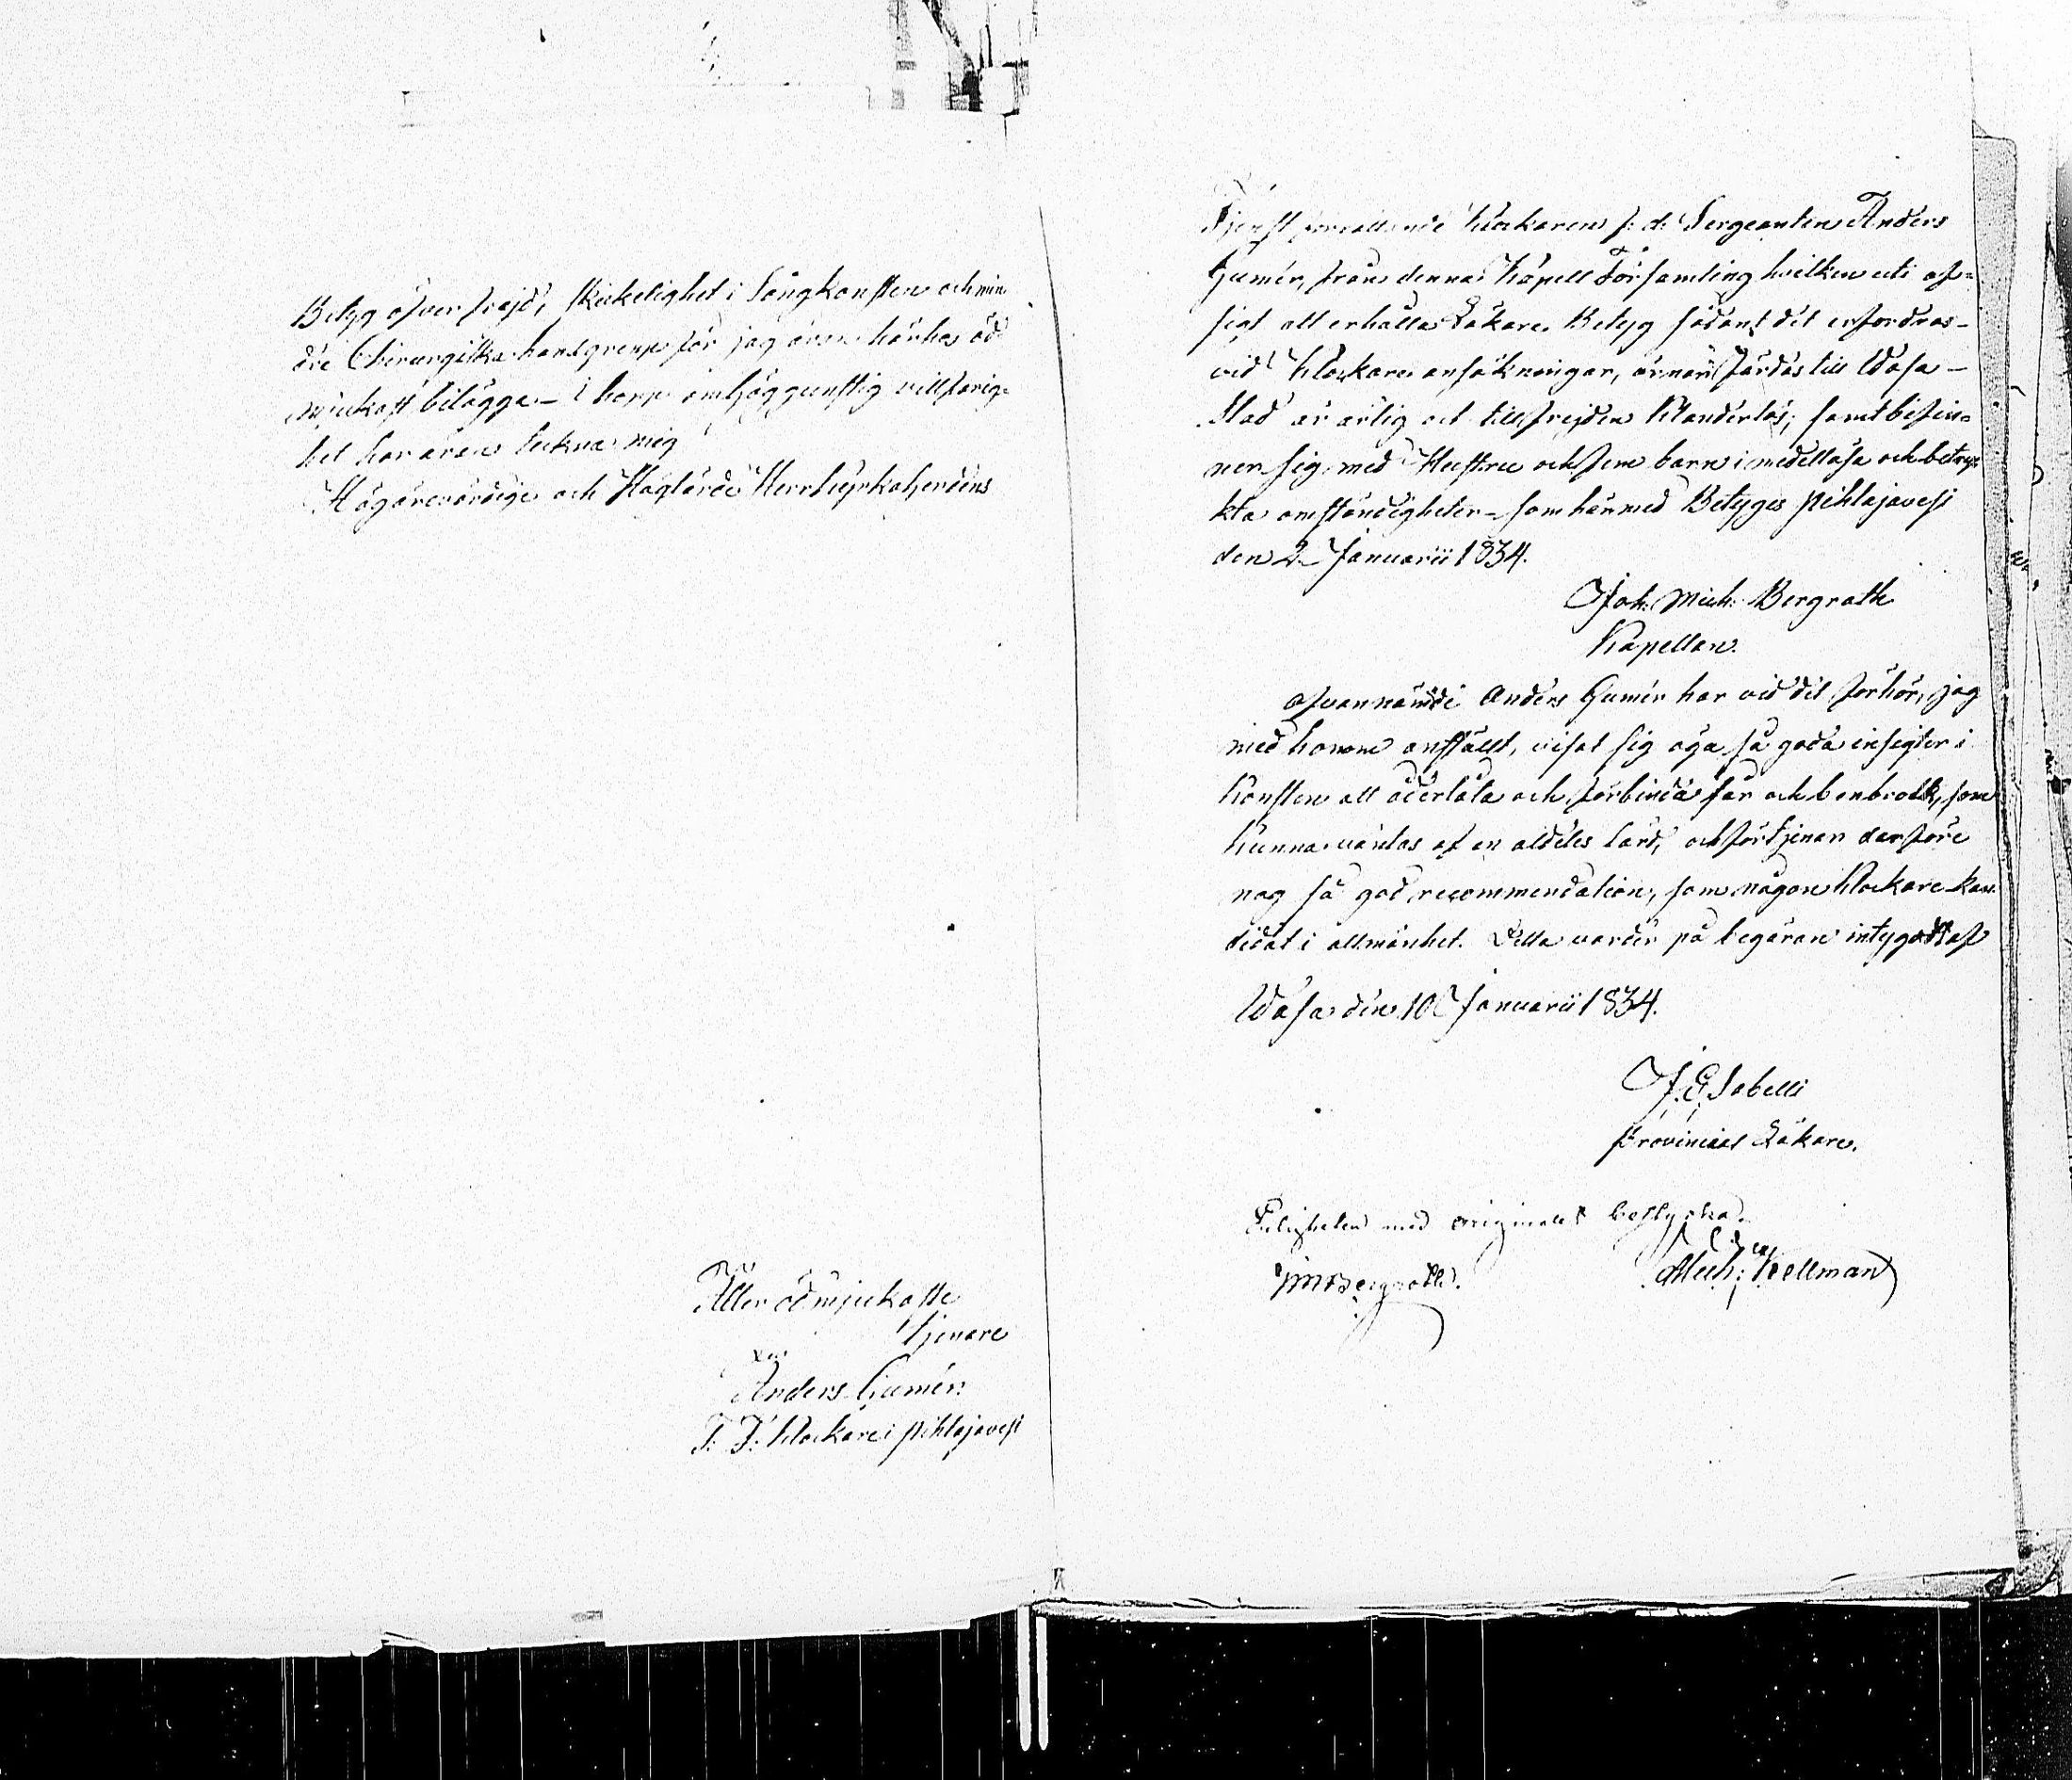 Betyg öfver frejd, skickelighet i Sångkonsten och min
dre Chirurgiska handgrepp får jag äran härhos öd
mjukast bilägga – i hopp om höggunstig villfarig-
het har äran teckna mig
Högärevördige och Höglärde Herr Kyrkoherdens
Aller ödmjukaste
tjenare
Anders Gumér.
T. F. Klockare i Pihlajavesi
Tjenstförrättande Klockaren f: d: Sergeanten Anders
Gumér, från denna Kapell Församling hvilken uti af-
sigt att erhålla Läkare Betyg sådant det erfordras
vid Klockare ansökningar, ärnar färdas till Wasa
Stad är ärlig och till frejden klanderlös, samt befin-
ner sig med Hustru och fem barn i medellösa och betryc
kta omständigheter – som härmed Betygas Pihlajavesi
den 2 Januarii 1834.
Joh: Mich: Bergroth
Kapellan.
Ofvannämde Anders Gumér har vid det förhör, jag
med honom anställt, visat sig äga så goda insigter i
konsten att åderlåta och förbinda sår och benbrott, som
kunna väntas af en aldeles lärd, och förtjenar derföre
nog så god recommendation, som någon klockare kan
didat i allmänhet. Detta varder på begäran intygadt af
Wasa den 10 Januarii 1834.
J. E. Sabelli
Provincial Läkare.
Enligheten med originalet bestyrka.
JM Bergroth. Mich: Kellman